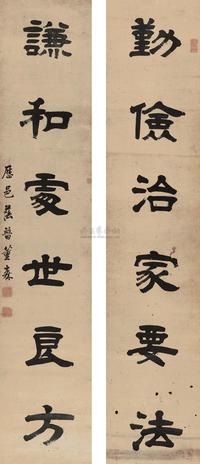 勤儉治家要法
謙和處世良方
歷邑